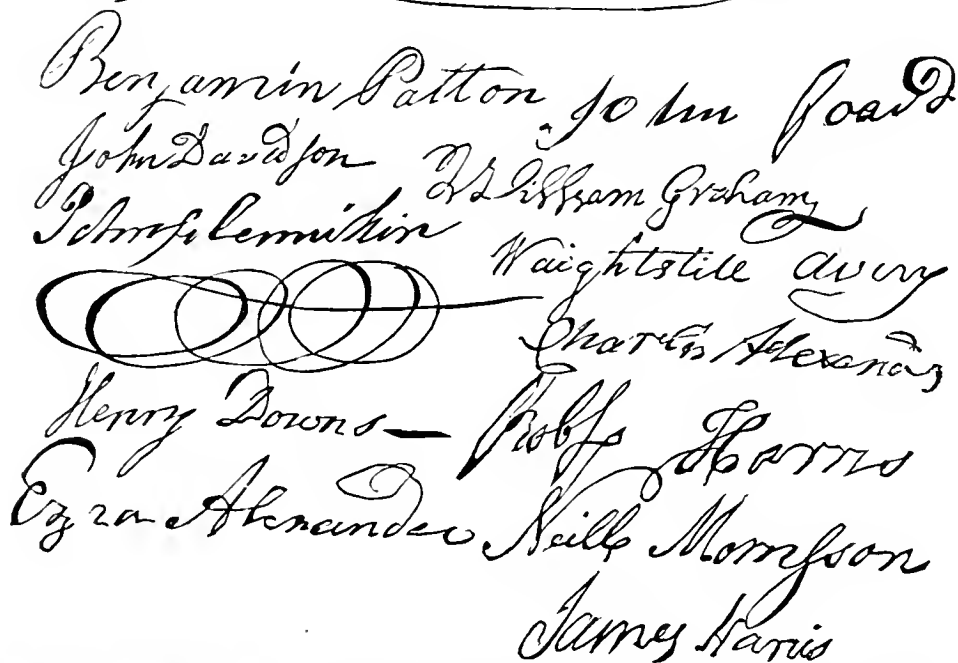 Benjamin Patton
John Foard
John Davidson
William Graham
John Flennikin
Waightstill Avery
Charles Alexander
Henry Downs —
Robt Harris
Ezra Alexander
Neill Morrison
James Harris